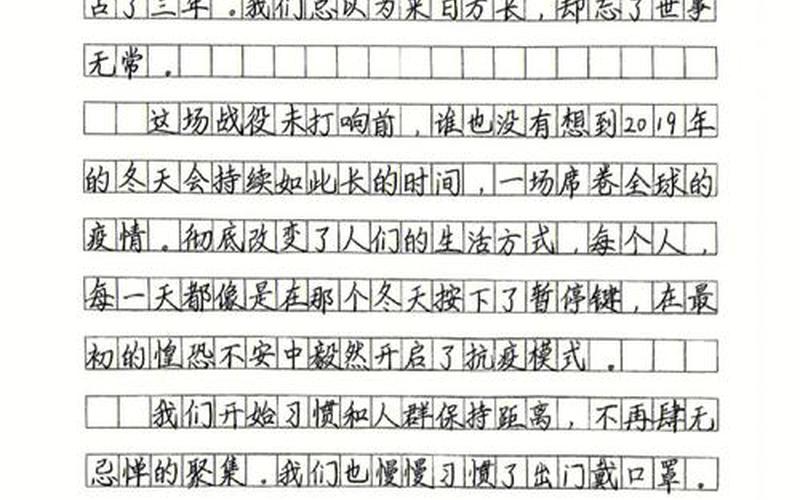 占了三年。我们总以为来日方长，却忘了世事
无常。
这场战役未打响前，谁也没有想到2019年
的冬天会持续如此长的时间，一场席卷全球的
疫情。彻底改变了人们的生活方式，每个人，
每一天都像是在那个冬天按下了暂停键，在最
初的惶恐不安中毅然开启了抗疫模式。
我们开始习惯和人群保持距离，不再肆无
忌惮的聚集。我们也慢慢习惯了出门戴口罩。